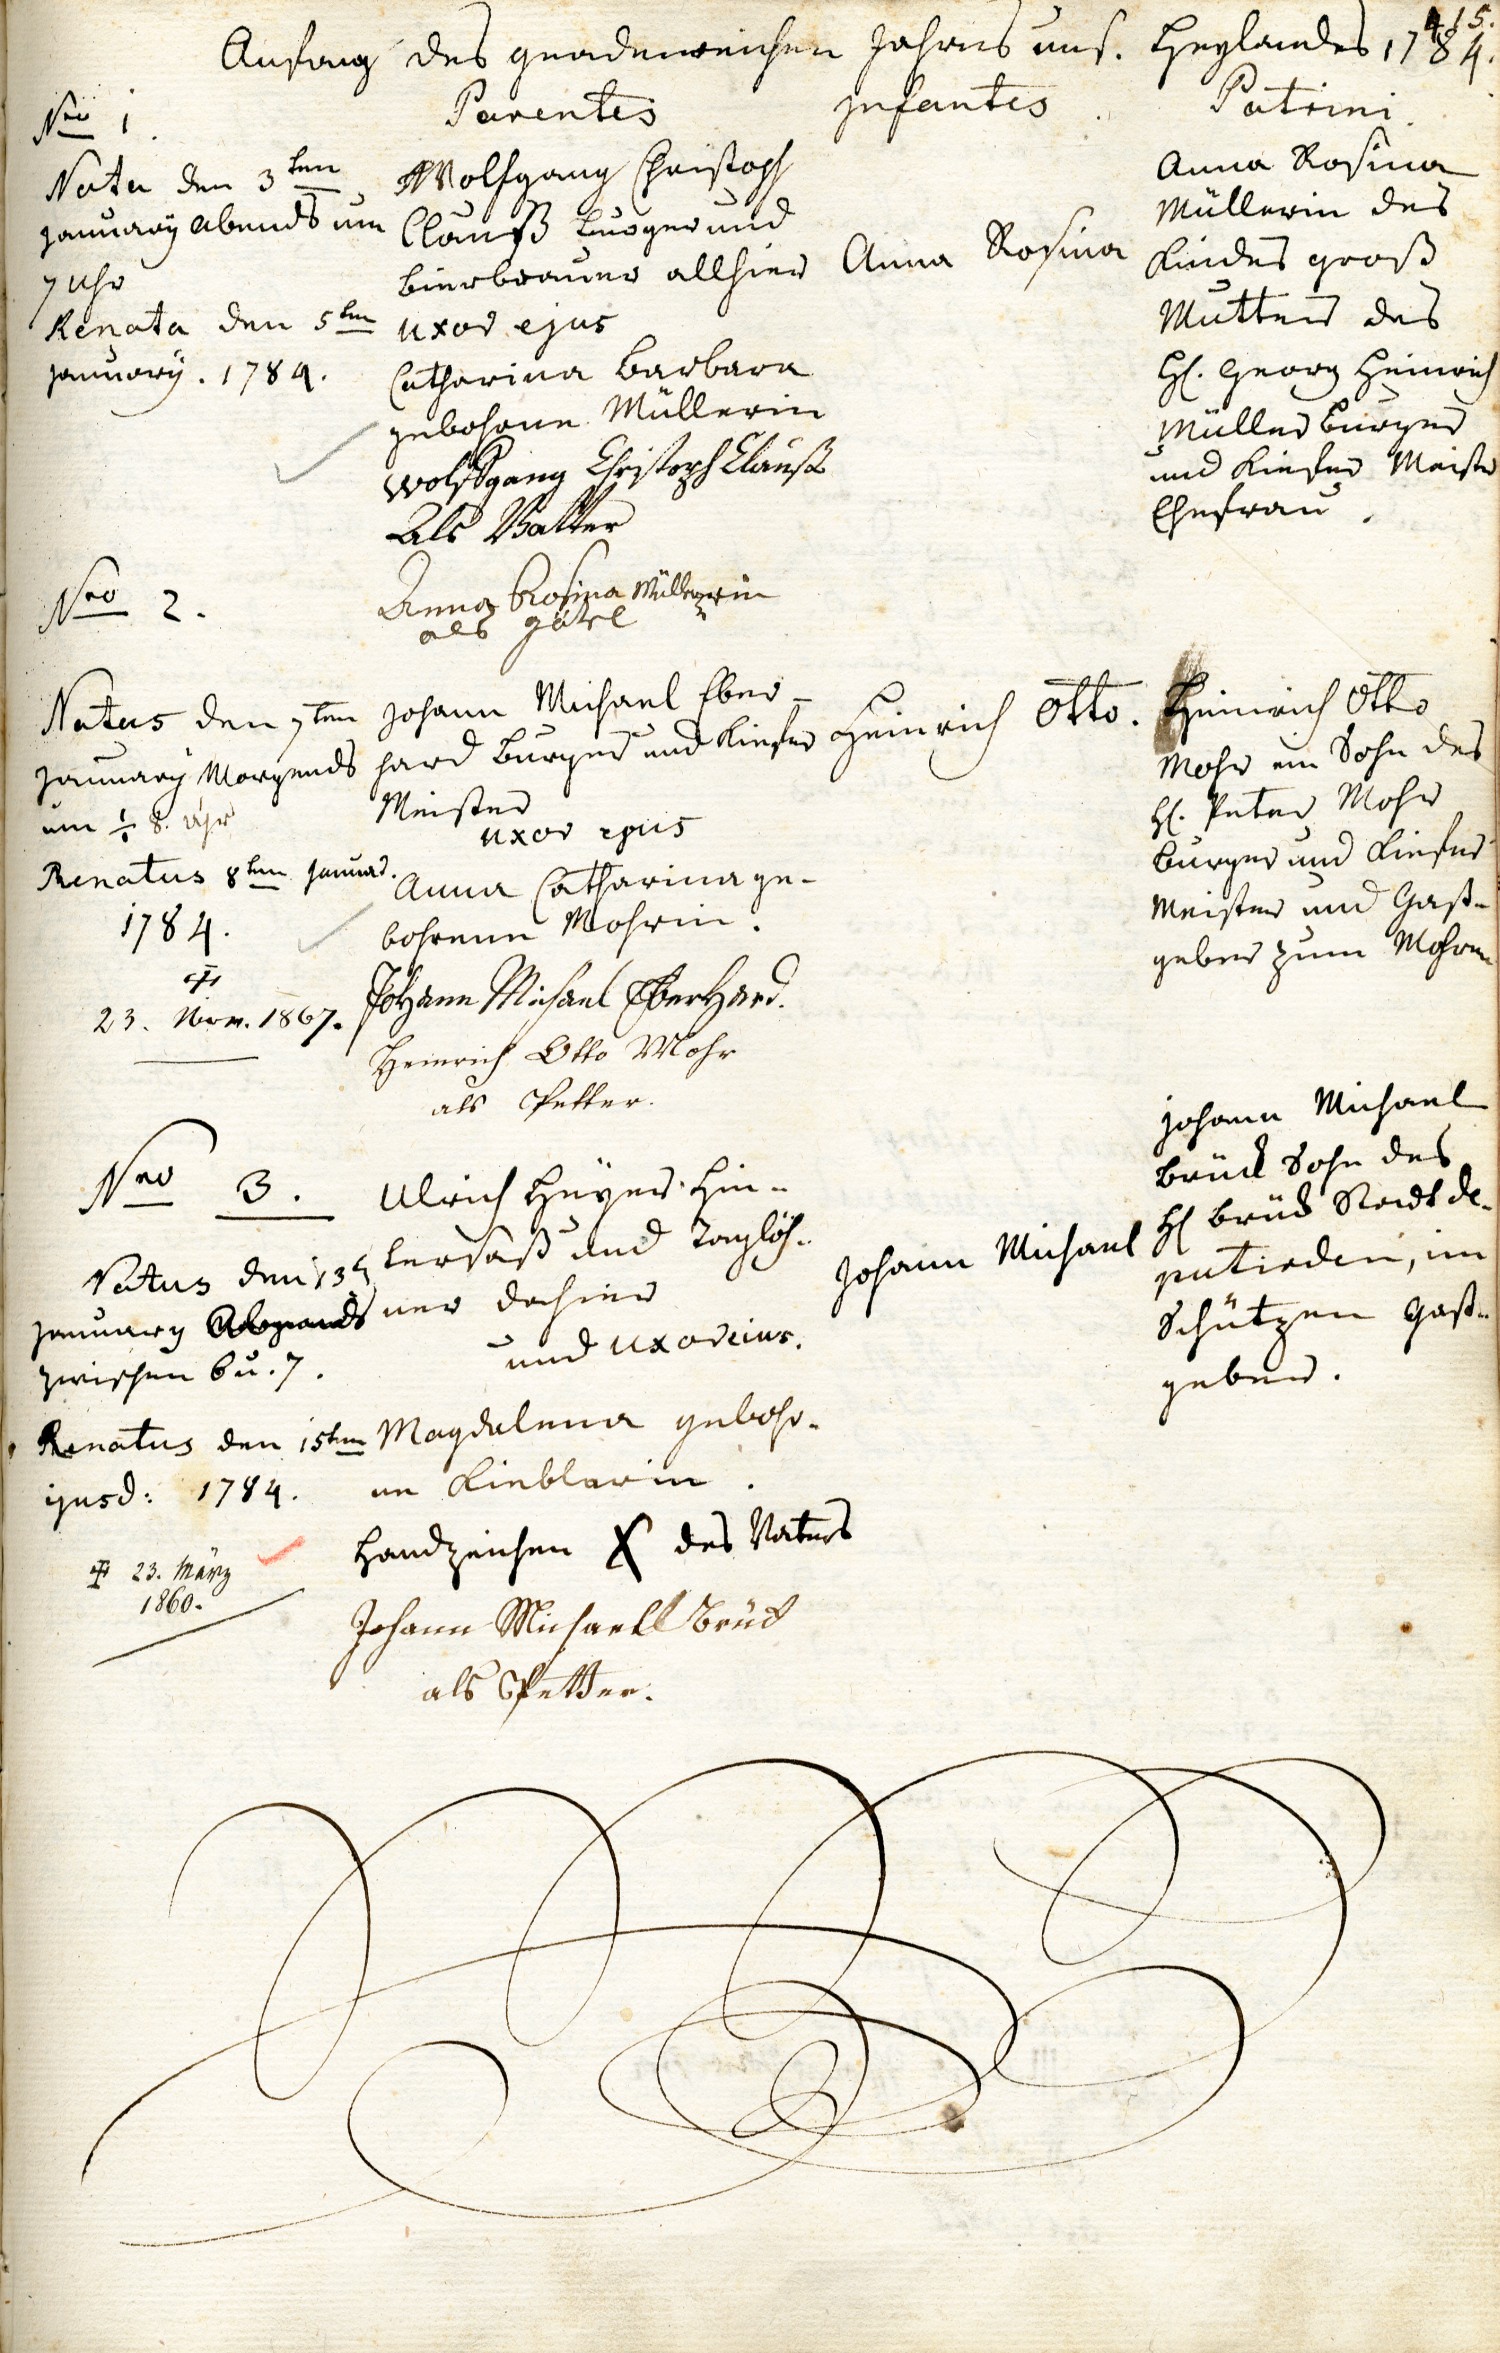 415.
Anfang des gnadenreichen Jahres uns. Heylandes 1784.
Parentes Infantes. Patrini.
Nro 1.
Nata den 3ten
January abends um
7 Uhr
Renata den 5ten
January. 1784.
Wolfgang Christoph
Clauß Burger und
Bierbrauer allhier
uxor ejus
Catharina Barbara
gebohrne Müllerin
Wolffgang Christoph Clauß
Als Vatter
Anna Rosina Müllerin
als götel
Anna Rosina
Anna Rosina
Müllerin des
Kindes groß
Mutter des
H. Georg Heinrich
Müller Burger
und Kiefer Meister
Ehefrau.
Nro 2.
Natus den 7ten
January Morgends
um 8. Uhr
Renatus 8ten Januar.
1784.
23. Nov. 1867.
Johann Michael Eber-
hard Burger und Kiefer
Meister
uxor ejus
Anna Catharina ge-
bohrene Mohrin.
Johann Michael Eberhard.
Heinrich Otto Mohr
als Petter.
Heinrich Otto.
Heinrich Otto
Mohr ein Sohn des
H. Peter Mohr
Burger und Kiefer
Meister und Gast-
geber zum Mohren
Nro 3.
Natus den 13t
January
zwischen 6 u. 7.
Renatus den 15ten
ejusd: 1784.
23. März
1860.
Ulrich Heyer Hin-
tersaß und Taglöh-
ner dahier
und uxor eius.
Magdalena gebohr-
ne Kieblerin.
Handzeichen X des Vaters
Johann Michaell Brück
als Petter.
Johann Michael
Johann Michael
Brück Sohn des
H Brück Stadt de-
putirden, im
Schützen Gast-
geber.